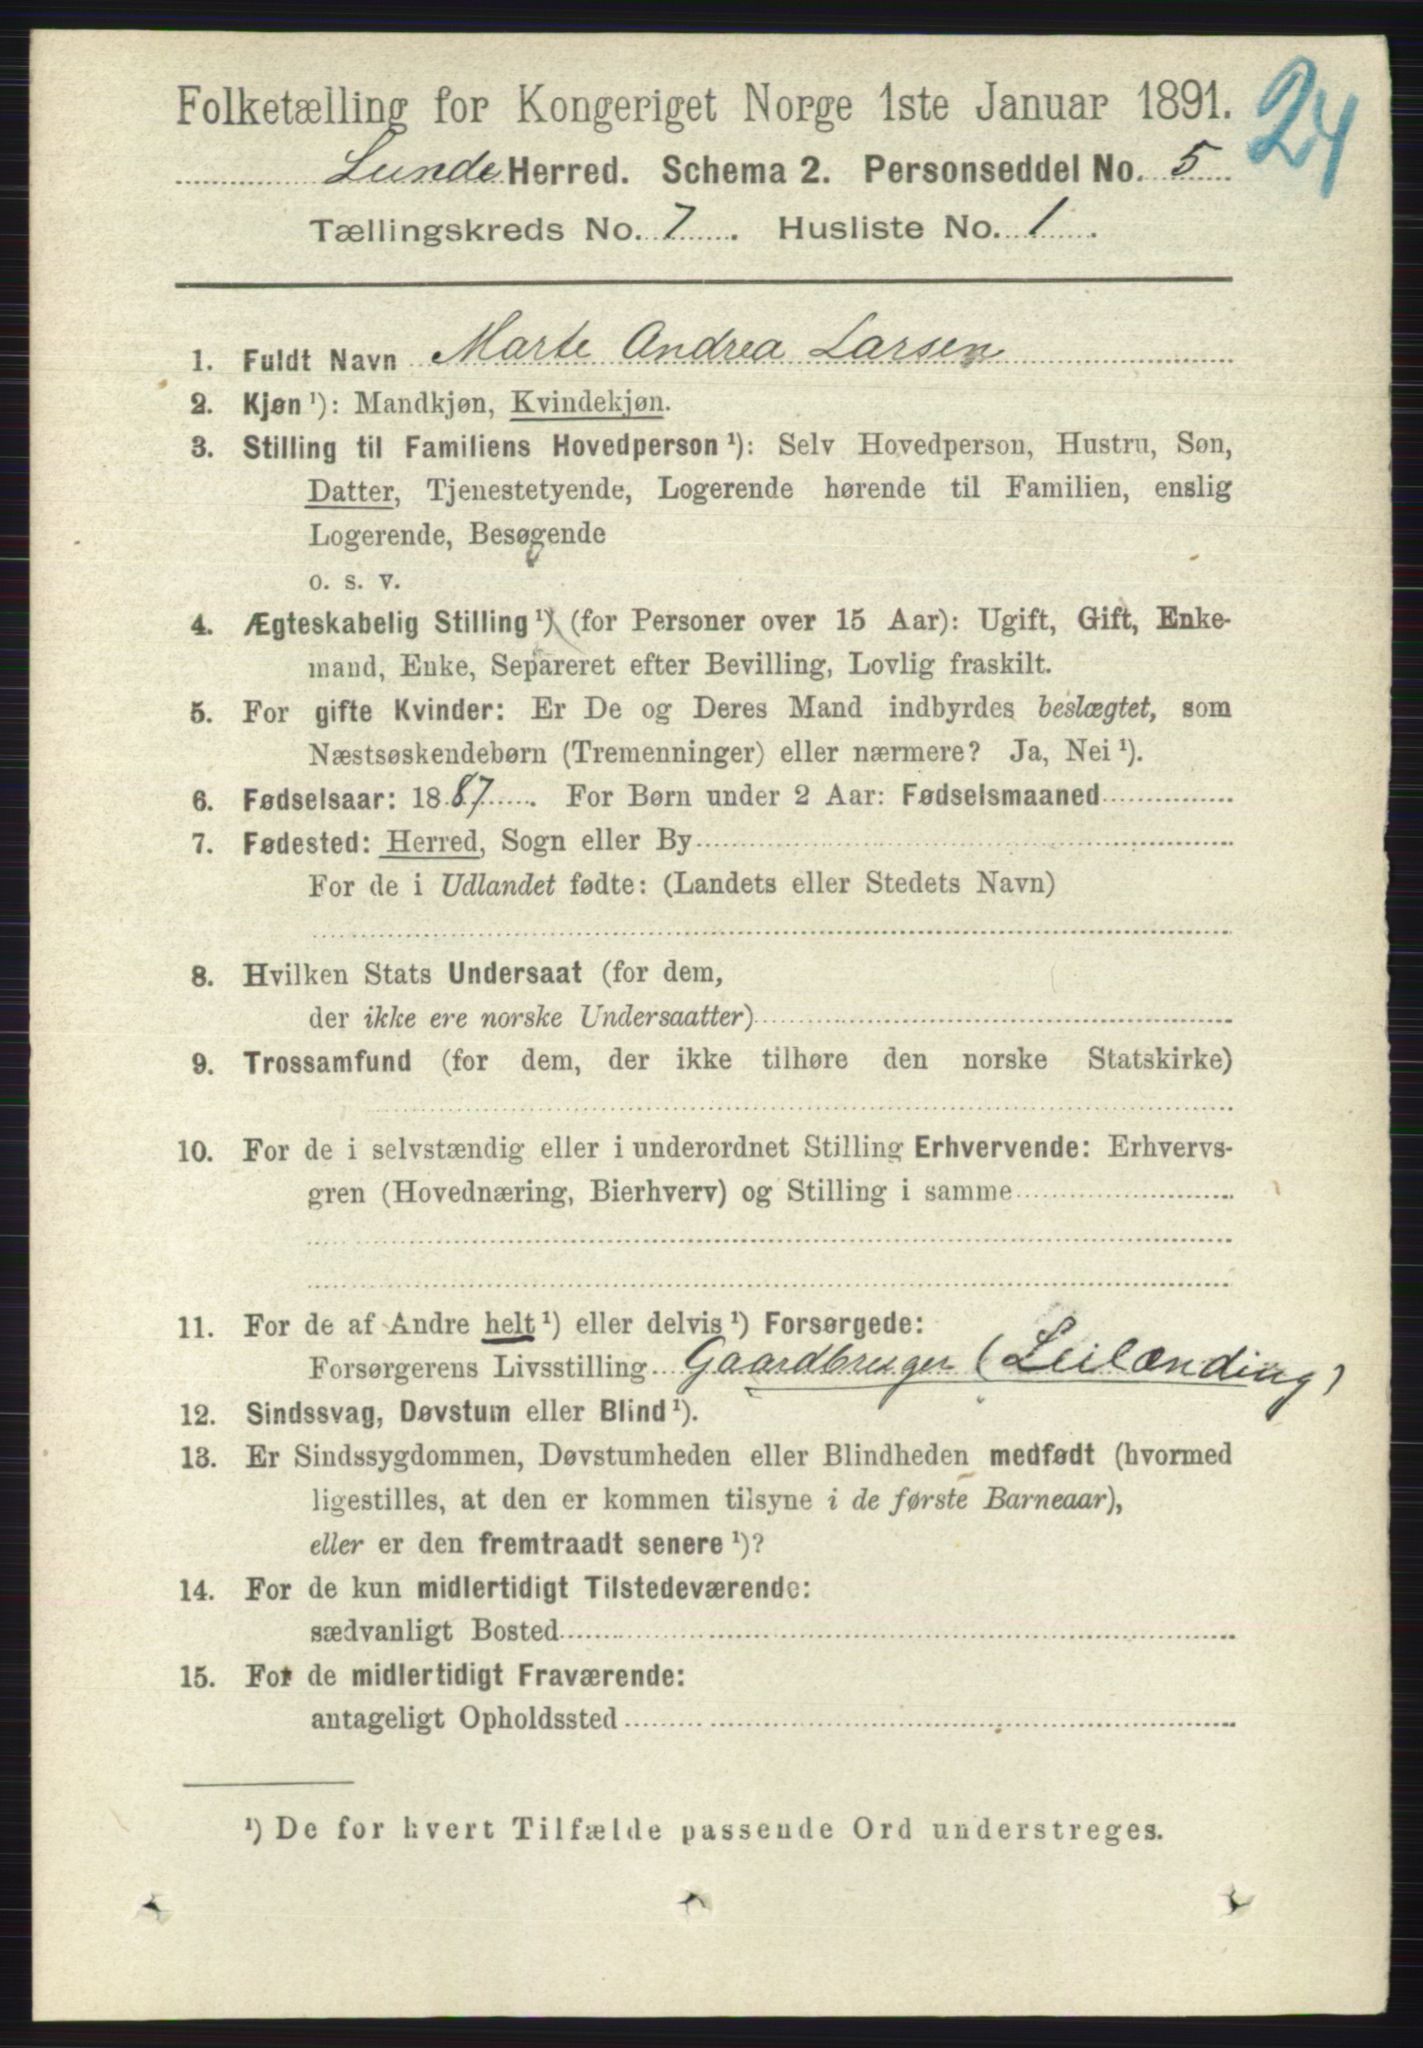 24
Folketælling for Kongeriget Norge 1ste Januar 1891.
Lunde Herred. Schema 2. Personseddel No. 5
Tællingskreds No. 7. Husliste No. 1.
1. Fuldt Navn Marte Andrea Larsen
2. Kjøn ¹): Mandkjøn, Kvindekjøn.
3. Stilling til Familiens Hovedperson ¹): Selv Hovedperson, Hustru, Søn,
Datter, Tjenestetyende, Logerende hørende til Familien, enslig
Logerende, Besøgende
o. s. v.
4. Ægteskabelig Stilling ¹) (for Personer over 15 Aar): Ugift, Gift, Enke-
mand, Enke, Separeret efter Bevilling, Lovlig fraskilt.
5. For gifte Kvinder: Er De og Deres Mand indbyrdes beslægtet, som
Næstsøskendebørn (Tremenninger) eller nærmere? Ja, Nei ¹).
6. Fødselsaar: 1887. For Børn under 2 Aar: Fødselsmaaned
7. Fødested: Herred, Sogn eller By
For de i Udlandet fødte: (Landets eller Stedets Navn)
8. Hvilken Stats Undersaat (for dem,
der ikke ere norske Undersaatter)
9. Trossamfund (for dem, der ikke tilhøre den norske Statskirke)
10. For de i selvstændig eller i underordnet Stilling Erhvervende: Erhvervs-
gren (Hovednæring, Bierhverv) og Stilling i samme
11. For de af Andre helt ¹) eller delvis ¹) Forsørgede:
Forsørgerens Livsstilling Gaardbruger (Leilænding)
12. Sindssvag, Døvstum eller Blind ¹).
13. Er Sindssygdommen, Døvstumheden eller Blindheden medfødt (hvormed
ligestilles, at den er kommen tilsyne i de første Barneaar),
eller er den fremtraadt senere ¹)?
14. For de kun midlertidigt Tilstedeværende:
sædvanligt Bosted
15. For de midlertidigt Fraværende:
antageligt Opholdssted
¹) De for hvert Tilfælde passende Ord understreges.